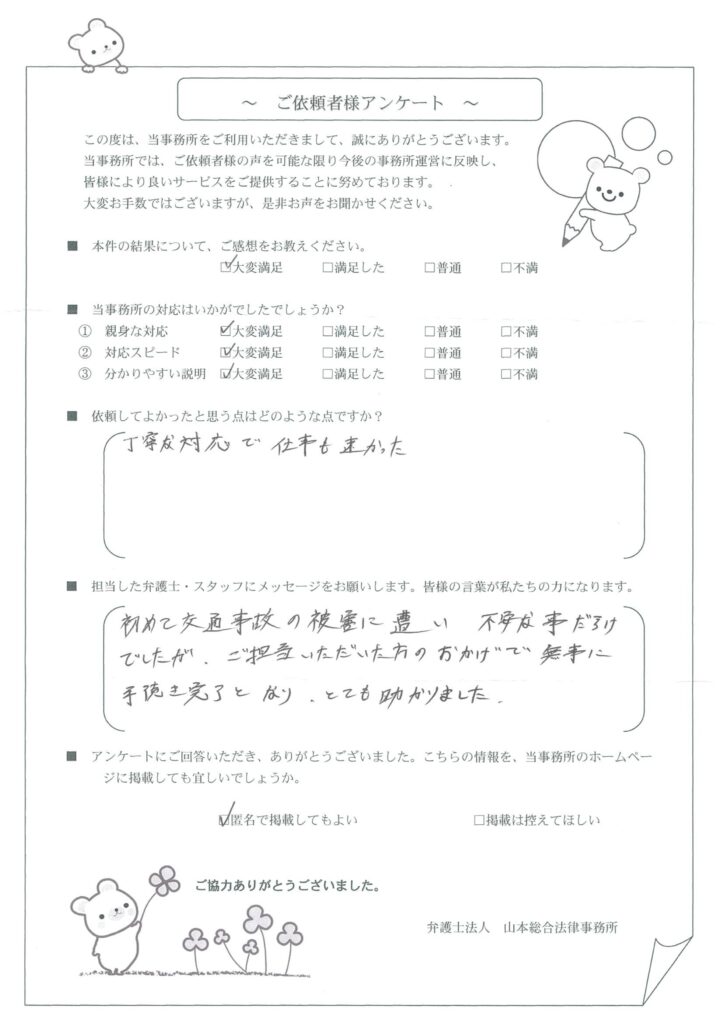 ～ ご依頼者様アンケート ～
この度は、当事務所をご利用いただきまして、誠にありがとうございます。
当事務所では、ご依頼者様の声を可能な限り今後の事務所運営に反映し、
皆様により良いサービスをご提供することに努めております。
大変お手数ではございますが、是非お声をお聞かせください。
■ 本件の結果について、ご感想をお教えください。
☑大変満足 □満足した □普通 □不満
■ 当事務所の対応はいかがでしたでしょうか？
① 親身な対応 ☑大変満足 □満足した □普通 □不満
② 対応スピード ☑大変満足 □満足した □普通 □不満
③ 分かりやすい説明 ☑大変満足 □満足した □普通 □不満
■ 依頼してよかったと思う点はどのような点ですか？
丁寧な対応で 仕事も速かった
■ 担当した弁護士・スタッフにメッセージをお願いします。皆様の言葉が私たちの力になります。
初めて交通事故の被害に遭い 不安な事だらけ
でしたが、ご担当いただいた方のおかげで無事に
手続き完了となり、とても助かりました。
■ アンケートにご回答いただき、ありがとうございました。こちらの情報を、当事務所のホームペー
ジに掲載しても宜しいでしょうか。
☑匿名で掲載してもよい □掲載は控えてほしい
ご協力ありがとうございました。
弁護士法人 山本総合法律事務所